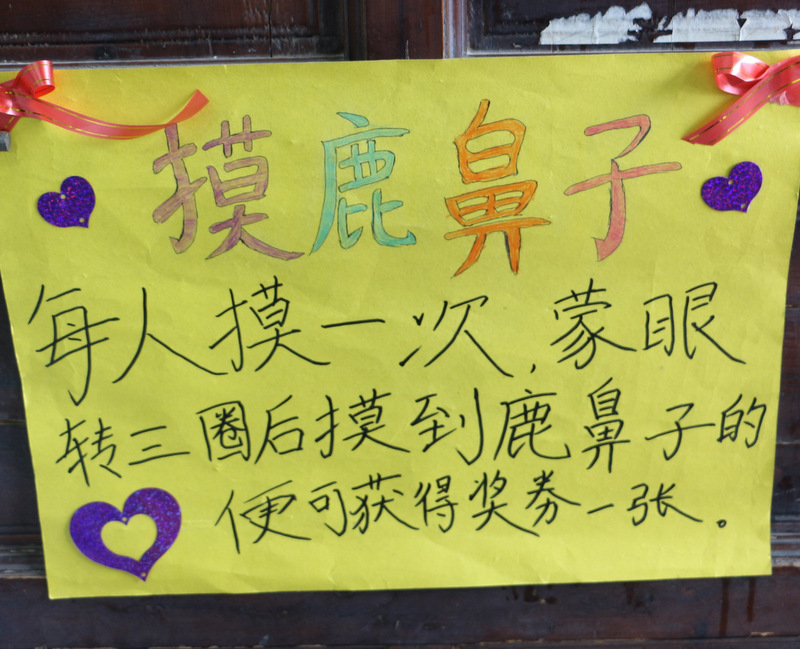 摸鹿鼻子
每人摸一次,蒙眼
转三圈后摸到鹿鼻子的
便可获得奖券一张。